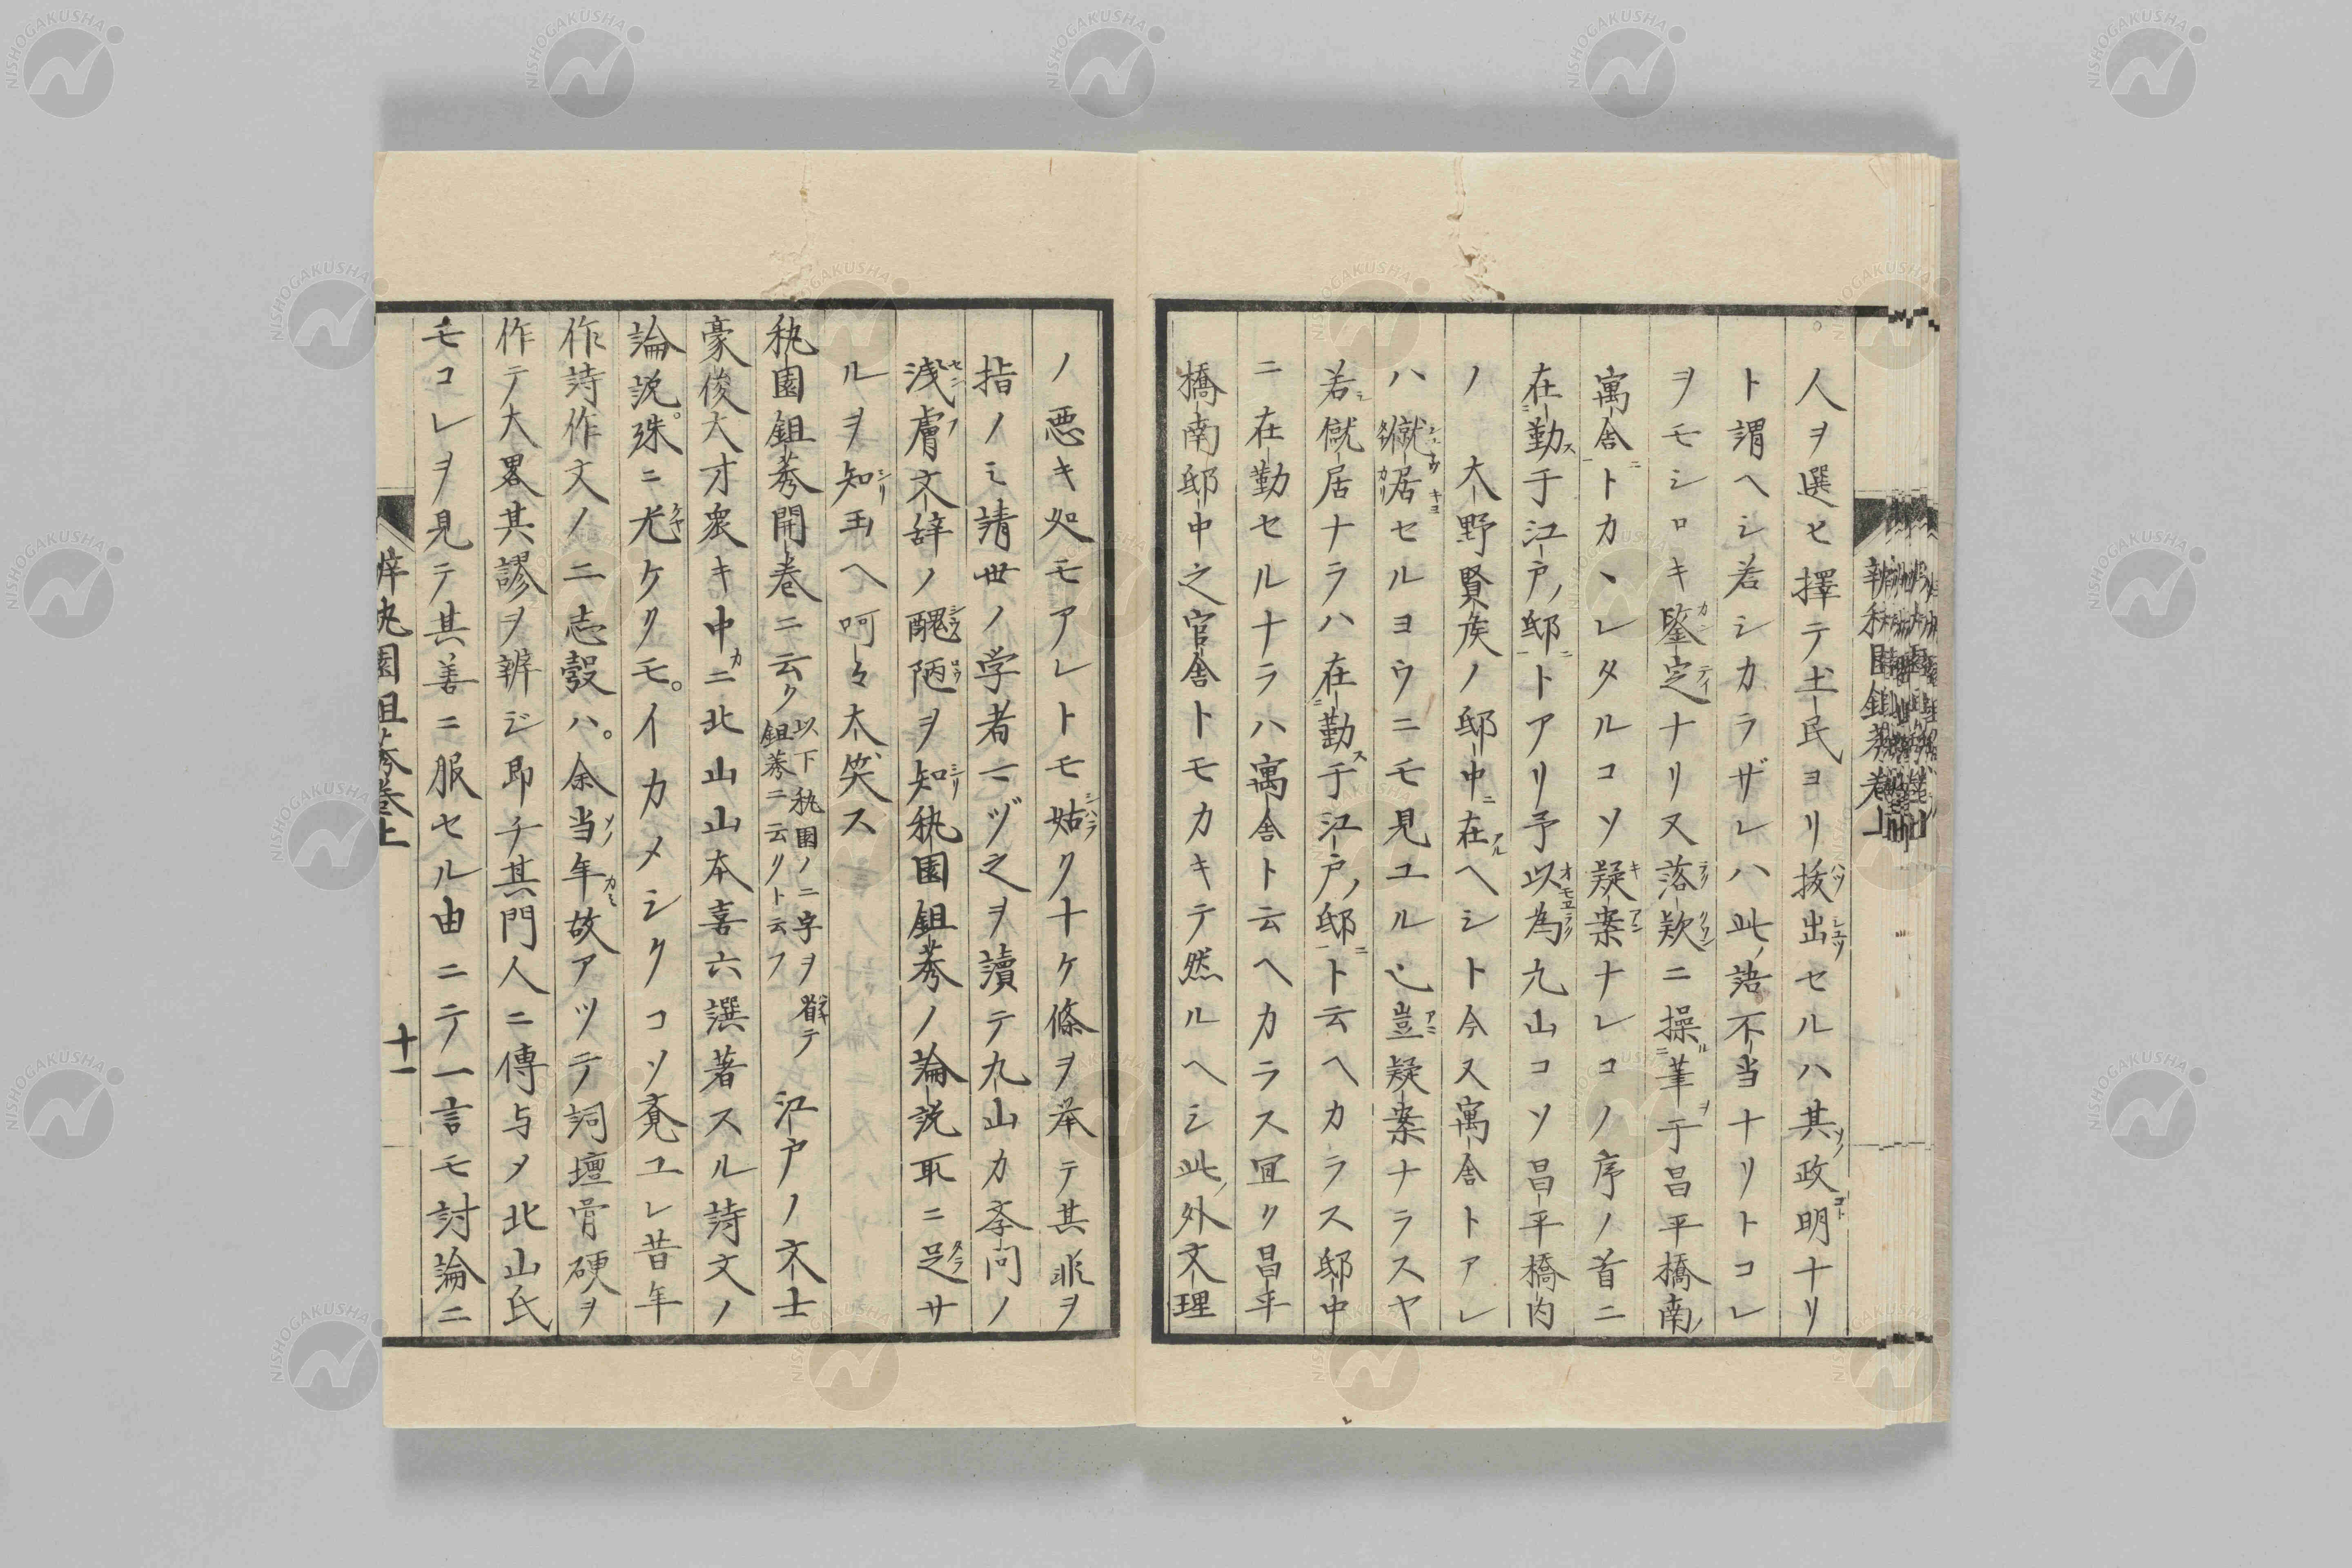 人ヲ選ヒ擇テ土民ヨリ抜出セルハ其政明ナリ
ト謂ヘシ若シカラザレハ此語不当ナリトコレ
ヲモシロキ鑒定ナリ又落款ニ操筆于昌平橋南
寓舎トカヽレタルコソ疑案ナレコノ序ノ首ニ
在勤于江戸邸トアリ予以為九山コソ昌平橋内
ノ大野賢矦ノ邸中在ヘシト今又寓舎トアレ
ハ僦居セルヨウニモ見ユル也豈疑案ナラスヤ
若僦居ナラハ在勤于江戸ノ邸ト云ヘカラス邸中
ニ在勤セルナラハ寓舎ト云ヘカラス宜ク昌平
橋南邸中之官舎トモカキテ然ルヘシ此外文理
ノ悪キ処モアレトモ姑ク十ケ條ヲ举テ其非ヲ
指ノミ請世ノ学者一ヅ之ヲ讀テ九山カ斈問ノ
浅膚文辞ノ醜陋ヲ知秇園鉏莠ノ論説取ニ足サ
ルヲ知玉ヘ呵々大笑ス
秇園鉏莠開巻ニ云ク以下秇園ノ二字ヲ省テ鉏莠ニ云リト云フ江戸ノ文士
豪俊大才衆キ中ニ北山山本喜六譔著スル詩文ノ
論説。殊ニ尤ケクモ。イカメシクコソ覔ユレ昔年
作詩作文ノ二志彀ハ。余当年故アツテ詞壇骨硬ヲ
作テ大畧其謬ヲ辨ジ即チ其門人ニ傳与メ北山氏
モコレヲ見テ其善ニ服セル由ニテ一言モ討論ニ
辨秇園鉏莠巻上
十一
NISHOGAKUSHA